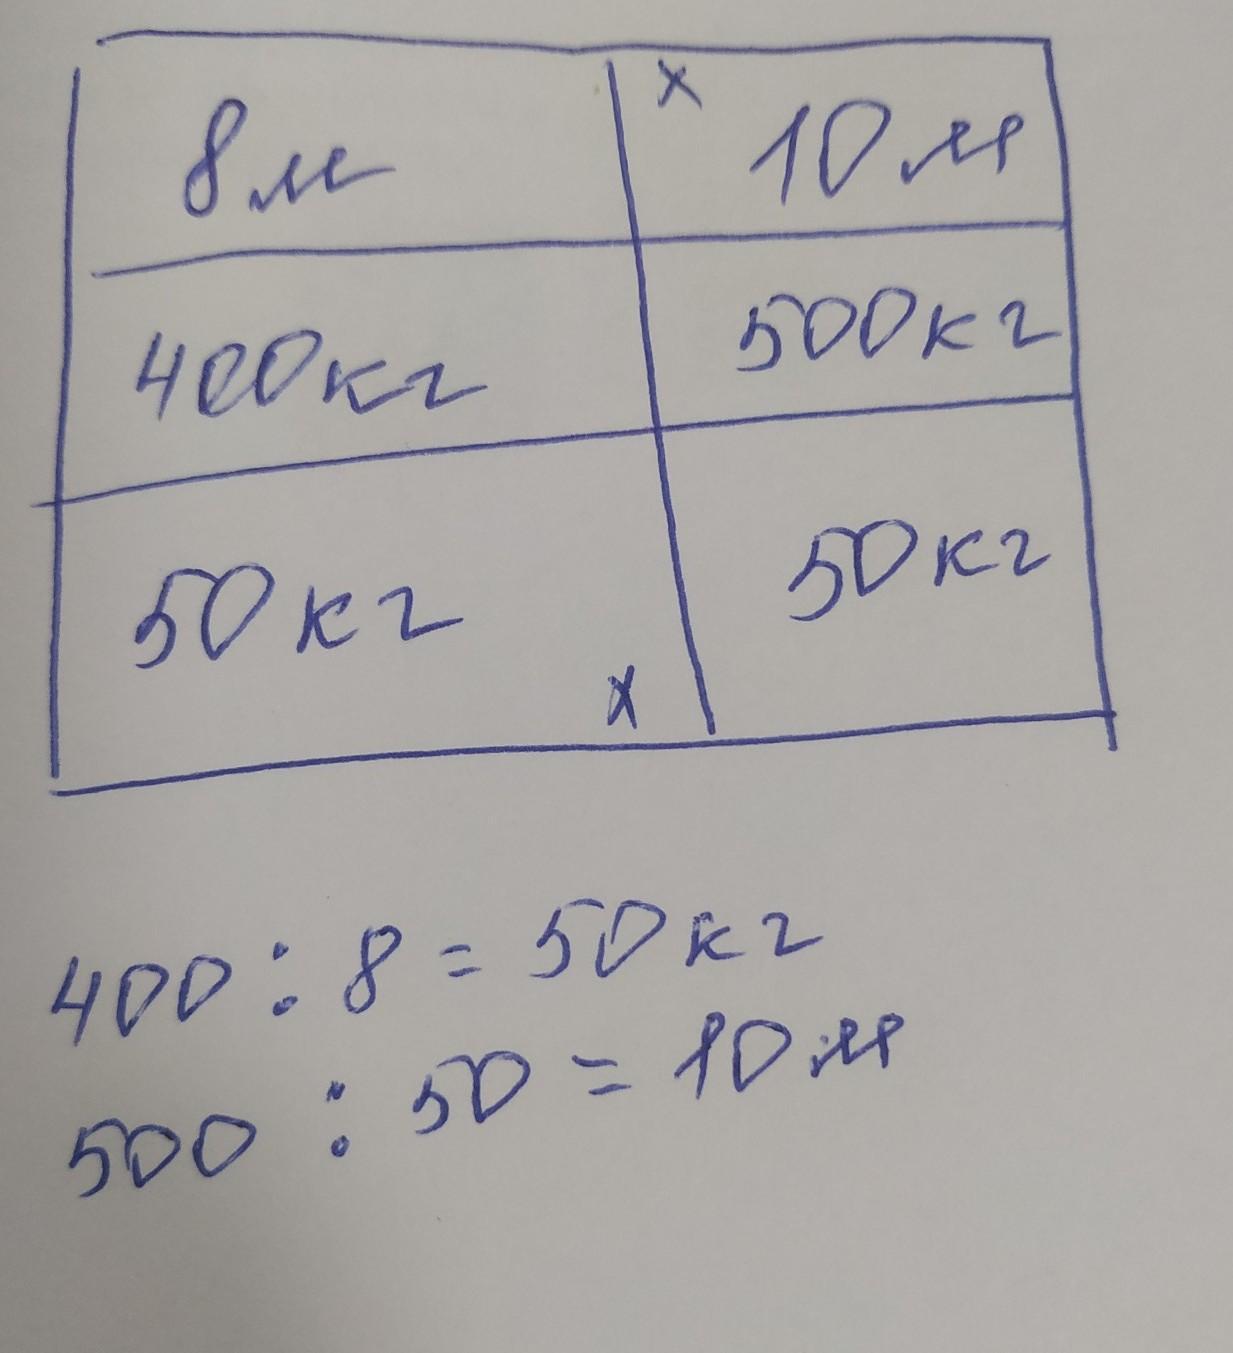 8м х 10м
400кг 500кг
50кг 50кг
х
400 : 8 = 50кг
500 : 50 = 10м